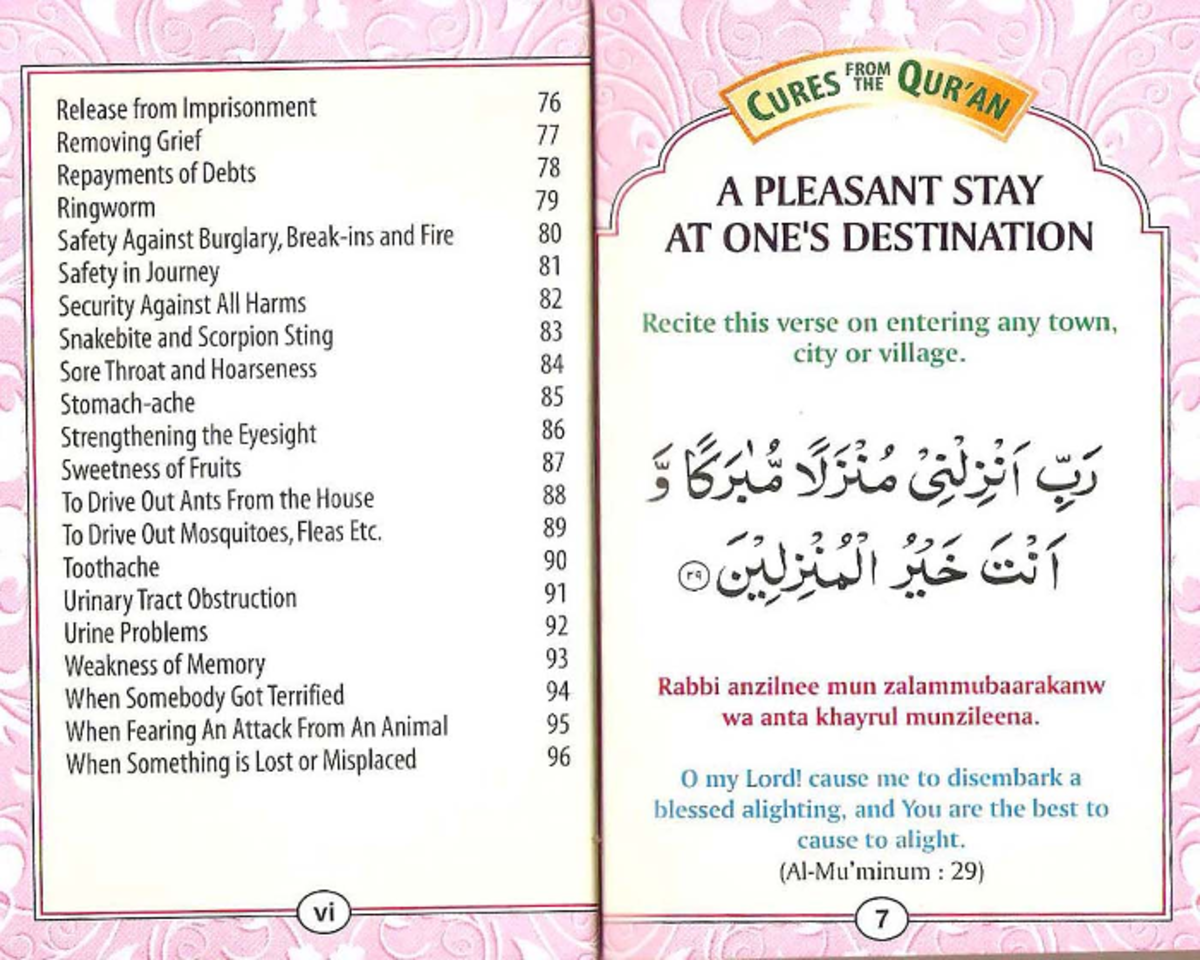 Release from Imprisonment 76
Removing Grief 77
Repayments of Debts 78
Ringworm 79
Safety Against Burglary, Break-ins and Fire 80
Safety in Journey 81
Security Against All Harms 82
Snakebite and Scorpion Sting 83
Sore Throat and Hoarseness 84
Stomach-ache 85
Strengthening the Eyesight 86
Sweetness of Fruits 87
To Drive Out Ants From the House 88
To Drive Out Mosquitoes, Fleas Etc. 89
Toothache 90
Urinary Tract Obstruction 91
Urine Problems 92
Weakness of Memory 93
When Somebody Got Terrified 94
When Fearing An Attack From An Animal 95
When Something is Lost or Misplaced 96
vi
CURES FROM THE QUR'AN
A PLEASANT STAY
AT ONE'S DESTINATION
Recite this verse on entering any town,
city or village.
رَبِّ اَنْزِلْنِىْ مُنْزَلًا مُّبٰرَكًا وَّ
اَنْتَ خَيْرُ الْمُنْزِلِيْنَ ۲۹
Rabbi anzilnee mun zalammubaarakanw
wa anta khayrul munzileena.
O my Lord! cause me to disembark a
blessed alighting, and You are the best to
cause to alight.
(Al-Mu'minum : 29)
7